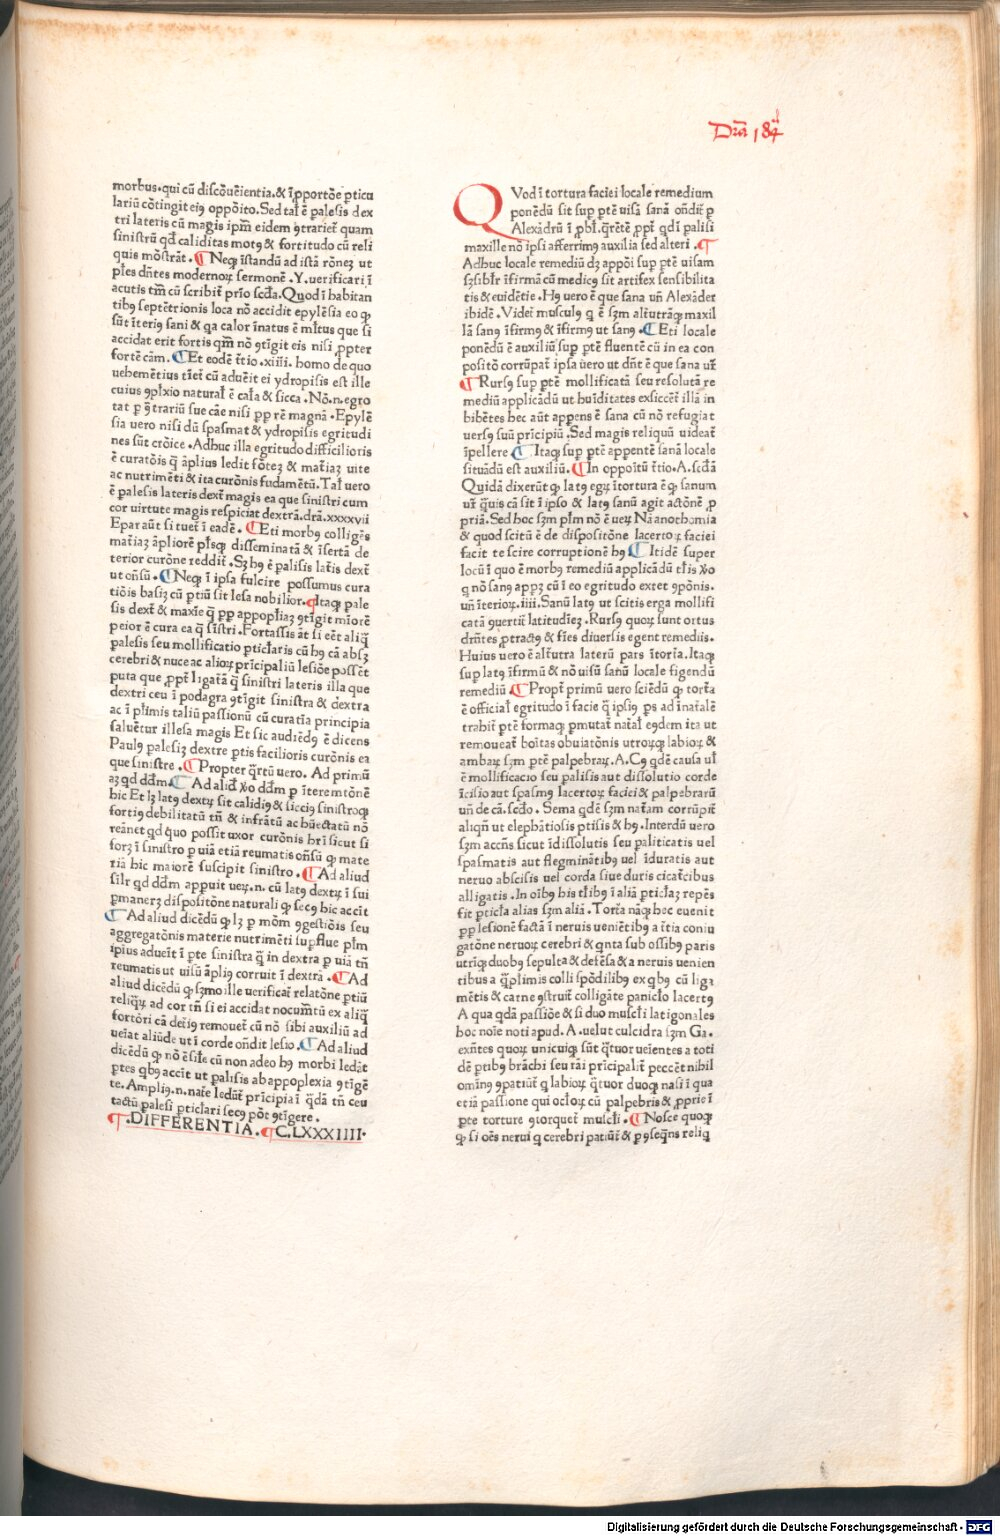 Dr̄a 184
morbus.qui cū discōuēientia.& īpportōe pticu
lariū cōtingit eiꝰ oppōito.Sed tal̄ ē palesis dex
tri lateris cū magis ip̄m eidem ꝯtrariet̄ quam
sinistrū qd̄ caliditas motꝰ & fortitudo cū reli
quis mōstrāt. ¶ Neqꝫ īstandū ad istā rōneꝫ ut
pl̄es dn̄tes modernoꝝ sermonē .Y. uerificari ī
acutis tm̄ cū scribit̄ prīo scd̄a.Quod ī habitan
tibꝰ septētrionis loca nō accidit epylēsia eo ꝙ
sūt īteriꝰ sani & qa calor īnatus ē ml̄tus que si
accidat erit fortis qm̄ nō ꝯtigit eis nisi ꝓpter
fortē cām. ¶ Et eodē t̄tio .xiiii. homo de quo
uehemētius tīet̄ cū aduēit ei ydropisis est ille
cuius ꝯplx̄io natural̄ ē cal̄a & sicca .Nō.n.egro
tat p ꝯtrariū sue cāe nisi pp rē magnā .Epylē
sia uero nisi dū spasmat & ydropisis egritudi
nes sūt crōice .Adhuc illa egritudo difficilioris
ē curatōis q̄ āplius ledit fōteꝫ & mat̄iaꝫ uite
ac nutrimēti & ita curōnis fudamētū.Tal̄ uero
ē palesis lateris dext̄ magis ea que sinistri cum
cor uirtute magis respiciat dextrā.dr̄a.xxxxvii
Epar aūt si tuet̄ ī eadē. ¶ Eti morbꝰ colligēs
mat̄iaꝫ āpliorē pl̄sqꝫ disseminatā & īsertā de
terior curōne reddit̄ .Sꝫ hꝰ ē palisis lat̄is dext̄
ut on̄sū . ¶ Neqꝫ ī ipsa fulcire possumus cura
tiōis basiꝫ cū ptiū sit lesa nobilior. ¶ Itaqꝫ pale
sis dext̄ & maxīe q̄ pp appopl̄iaꝫ ꝯtīgit mīorē
peior ē cura ea q̄ sīstri .Fortassis āt si eēt aliq̄
palesis seu mollificatio pticl̄aris cū hꝰ cā absꝫ
cerebri & nuce ac alioꝝ prīcipaliū lesiōe possēt
puta que ꝓpt̄ ligatā q̄ sinistri lateris illa que
dextri ceu ī podagra ꝯtīgit sinistra & dextra
ac ī pl̄imis taliū passionū cū curatīa principia
saluētur illesa magis Et sic audiēdꝰ ē dicens
Paulꝰ palesiꝫ dextre ptis facilioris curōnis ea
que sinistre . ¶ Propter q̄rtū uero. Ad primū
aꝫ qd dd̄m. ¶ Ad alid̄ xo dd̄m p īteremtōnē
hic Et lꝫ latꝰ dextꝝ sit calidiꝰ & sicciꝰ sinistroqꝫ
fortiꝰ debilitatū tn̄ & infrātū ac būectatū nō
reānet qd q̄uo possit uxor curōnis bri sicut si
forꝫ ī sinistro p uiā etiā reumatis on̄sū ꝙ mate
riā hic maiorē suscipit sinistro . ¶ Ad aliud
silr qd dd̄m appuit ueꝝ .n. cū latꝰ dextꝝ ī sui
pmanerꝫ dispositōne naturali ꝙ secꝰ hic accīt
¶ Ad aliud dicēdū ꝙ lꝫ p mōm ꝯgestiōis seu
aggregatōnis materie nutrimēti suꝑflue plm
ipius adueīt ī pte sinistra q̄ in dextra p uiā tn̄
reumatis ut uisū āpliꝰ corruit ī dextrā . ¶ Ad
aliud dicēdū ꝙ sꝫmo ille uerificat̄ relatōne ptiū
reliqꝝ ad cor tn̄ si ei accidat nocum̄tū ex aliq̄
fortōri cā det̄iꝰ remouet̄ cū nō sibi auxiliū ad
ueīat aliūde ut ī corde on̄dit lesio . ¶ Ad aliud
dicēdū ꝙ nō ē sīle cū non adeo hꝰ morbi ledāt
ptes qbꝰ accīt ut palisis ab appoplexia ꝯtigē
te. Ampliꝰ .n. nate ledūt̄ prīcipia ī qd̄ā tn̄ ceu
tactū palesi pticl̄ari secꝰ pōt ꝯtīgere .
¶ .DIFFERENTIA. ¶ C.LXXXIIII.
QVod ī tortura faciei locale remedium
ponēdū sit suꝑ ptē uisā sanā on̄dit̄ p
Alexādrū ī pbl̄.q̄rētē ꝓpt̄ qd̄ ī palisi
maxille nō ipsi afferrimꝰ auxilia sed alteri . ¶
Adhuc locale remediū dꝫ appōi suꝑ ptē uisam
sꝫsiblr̄ īfirmā cū medicꝰ sit artifex sensibilita
tis & euidētie . Hꝰ uero ē que sana un̄ Alexāder
ibidē .Videt̄ musculꝰ q ē sꝫm alt̄utrāqꝫ maxil
lā sanꝰ īfirmꝰ & īfirmꝰ ut sanꝰ . ¶ Eti locale
ponēdū ē auxiliū suꝑ ptē fluentē cū in ea con
positō corrūpat̄ ipsa uero ut dn̄t ē que sana ur̄
¶ Rursꝰ suꝑ ptē mollificatā seu resolutā re
mediū applicādū ut hūiditates exsiccēt̄ illā in
bibētes hec aūt appens ē sana cū nō refugiat
uersꝰ suū prīcipiū .Sed magis reliquū uideat̄
īpellere ¶ Itaqꝫ suꝑ ptē appentē sanā locale
situādū est auxiliū. ¶ In oppoītū t̄tio.A.scd̄ā
Quidā dixerūt ꝙ latꝰ egꝝ ītortura ē ꝙ sanum
ur̄ q̄uis cā sit ī ipso & latꝰ sanū agit actōnē ꝓ
priā.Sed hoc sꝫm pl̄m nō ē ueꝝ Nā anothomia
& quod scitū ē de dispositōne lacertoꝝ faciei
facit te scire corruptionē hꝰ ¶ Itidē super
locū ī quo ē morbꝰ remediū applicādū tl̄is xo
q nō sanꝰ appꝫ cū ī eo egritudo extet ꝯpōnis.
un̄ īterioꝝ.iiii.Sanū latꝰ ut scitis erga mollifi
catā ꝯuertit̄ latitudīeꝫ .Rursꝰ quoꝝ sunt ortus
drn̄tes ptractꝰ & fīes diuersis egent remediis.
Huius uero ē alt̄utra laterū pars ītorta.Itaqꝫ
suꝑ latꝰ īfirmū & nō uisū sanū locale figendū
remediū ¶ Propt̄ primū uero sciēdū ꝙ tort̄a
ē official̄ egritudo ī facie q̄ ipsiꝰ ps ad ī natālē
trabit̄ ptē formaqꝫ pmutat̄ natal̄ eꝯdem ita ut
remoueat̄ boītas obuiatōnis utroꝝqꝫ labioꝝ &
ambaꝝ sꝫm ptē palpebraꝝ .A. Cꝰ qdē causa ul̄
ē mollificacio seu palisis aut dissolutio corde
īcisio aut spasmꝰ lacertoꝝ faciei & palpebrarū
un̄ de cā.scd̄o . Sema qdē sꝫm nat̄am corrūpit̄
aliqn̄ ut elephātiosis ptisis & hꝰ .Interdū uero
sꝫm accn̄s sicut īdissolutis seu paliticatis uel
spasmatis aut flegminātibꝰ uel īduratis aut
neruo abscisis uel corda siue duris cicatcibus
alligatis .In oībꝰ his tl̄ibꝰ ī aliā pticl̄aꝫ repēs
fit pticl̄a alias sꝫm aliā .Tort̄a nāqꝫ hec euenit
pp lesionē factā ī neruis ueniētibꝰ a t̄tia coniu
gatōne neruoꝝ cerebri & qnta sub ossibꝰ paris
utrīqꝫ duobꝰ sepulta & detēsa & a neruis uenien
tibus a q̄ pl̄imis colli spōdilibꝰ ex qbꝰ cū liga
mētis & carne ꝯstruit̄ colligāte panicl̄o lacertꝰ
A qua qdā passiōe & si duo muscl̄i latigonales
hoc noīe noti apud .A .uelut culcidra sꝫm Ga.
exn̄tes quoꝝ unicuiqꝫ sūt q̄tuor ueīentes a toti
dē ptibꝰ brāchi seu rāi prīcipalit̄ peccēt nibil
ominꝰ ꝯpatiūt̄ q labioꝝ q̄tuor duoqꝫ nasi ī qua
etiā passione qui octoꝝ cū palpebris & ꝓprie ī
pte torture ꝯtorquet̄ muscl̄i . ¶ Nosce quoqꝫ
ꝙ si oēs nerui q cerebri patiūt̄ & p ꝯseqn̄s reliq
Digitalisierung gefördert durch die Deutsche Forschungsgemeinschaft - DFG